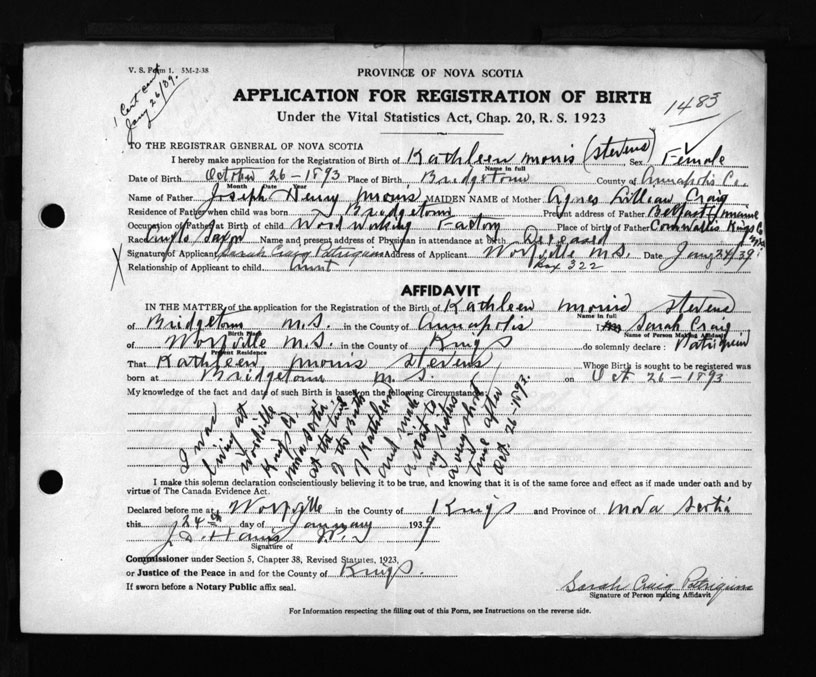 V. S. Form 1. 5M-2-38
1 Cert sent
Jany 26/39.
PROVINCE OF NOVA SCOTIA
APPLICATION FOR REGISTRATION OF BIRTH
1483
Under the Vital Statistics Act, Chap. 20, R. S. 1923
TO THE REGISTRAR GENERAL OF NOVA SCOTIA
I hereby make application for the Registration of Birth of Kathleen Morris (Stevens) Sex Female
Name in full
Date of Birth October 26-1893 Place of Birth Bridgetown County of Annapolis Co.
Month Date Year
Name of Father Joseph Henry Morris MAIDEN NAME of Mother Agnes Lillian Craig
Residence of Father when child was born Bridgetown Present address of Father Belfast, Maine
Occupation of Father at Birth of child Wood Working Factory Place of birth of Father Cornwallis Kings Co
Race Anglo Saxon Name and present address of Physician in attendance at birth Deceased
Signature of Applicant Sarah Craig Patriquin Address of Applicant Wolfville N.S. Date Jany 24/39
Relationship of Applicant to child Aunt Box 322
AFFIDAVIT
IN THE MATTER of the application for the Registration of Birth of Kathleen Morris Stevens
Name in full
of Bridgetown N.S. in the County of Annapolis I, Sarah Craig
Birth Place Name of Person Making Affidavit
of Wolfville N.S. in the County of Kings do solemnly declare: Patriquin
Present Residence
That Kathleen Morris Stevens Whose Birth is sought to be registered was
born at Bridgetown N.S. on Oct. 26-1893
My knowledge of the fact and date of such Birth is based on the following Circumstances:
I was
living at
Wolfville
Kings Co.
Nova Scotia
at the time
of the Birth
of Kathleen
and made
a visit to
my sister
a very short
time after
Oct. 26-1893.
I make this solemn declaration conscientiously believing it to be true, and knowing that it is of the same force and effect as if made under oath and by
virtue of The Canada Evidence Act.
Declared before me at Wolfville in the County of Kings and Province of Nova Scotia
this 24th day of January 1939
J. D. Harris J.P.
Signature of
Commissioner under Section 5, Chapter 38, Revised Statutes, 1923,
or Justice of the Peace in and for the County of Kings.
If sworn before a Notary Public affix seal.
Sarah Craig Patriquin
Signature of Person making Affidavit
For Information respecting the filling out of this Form, see Instructions on the reverse side.